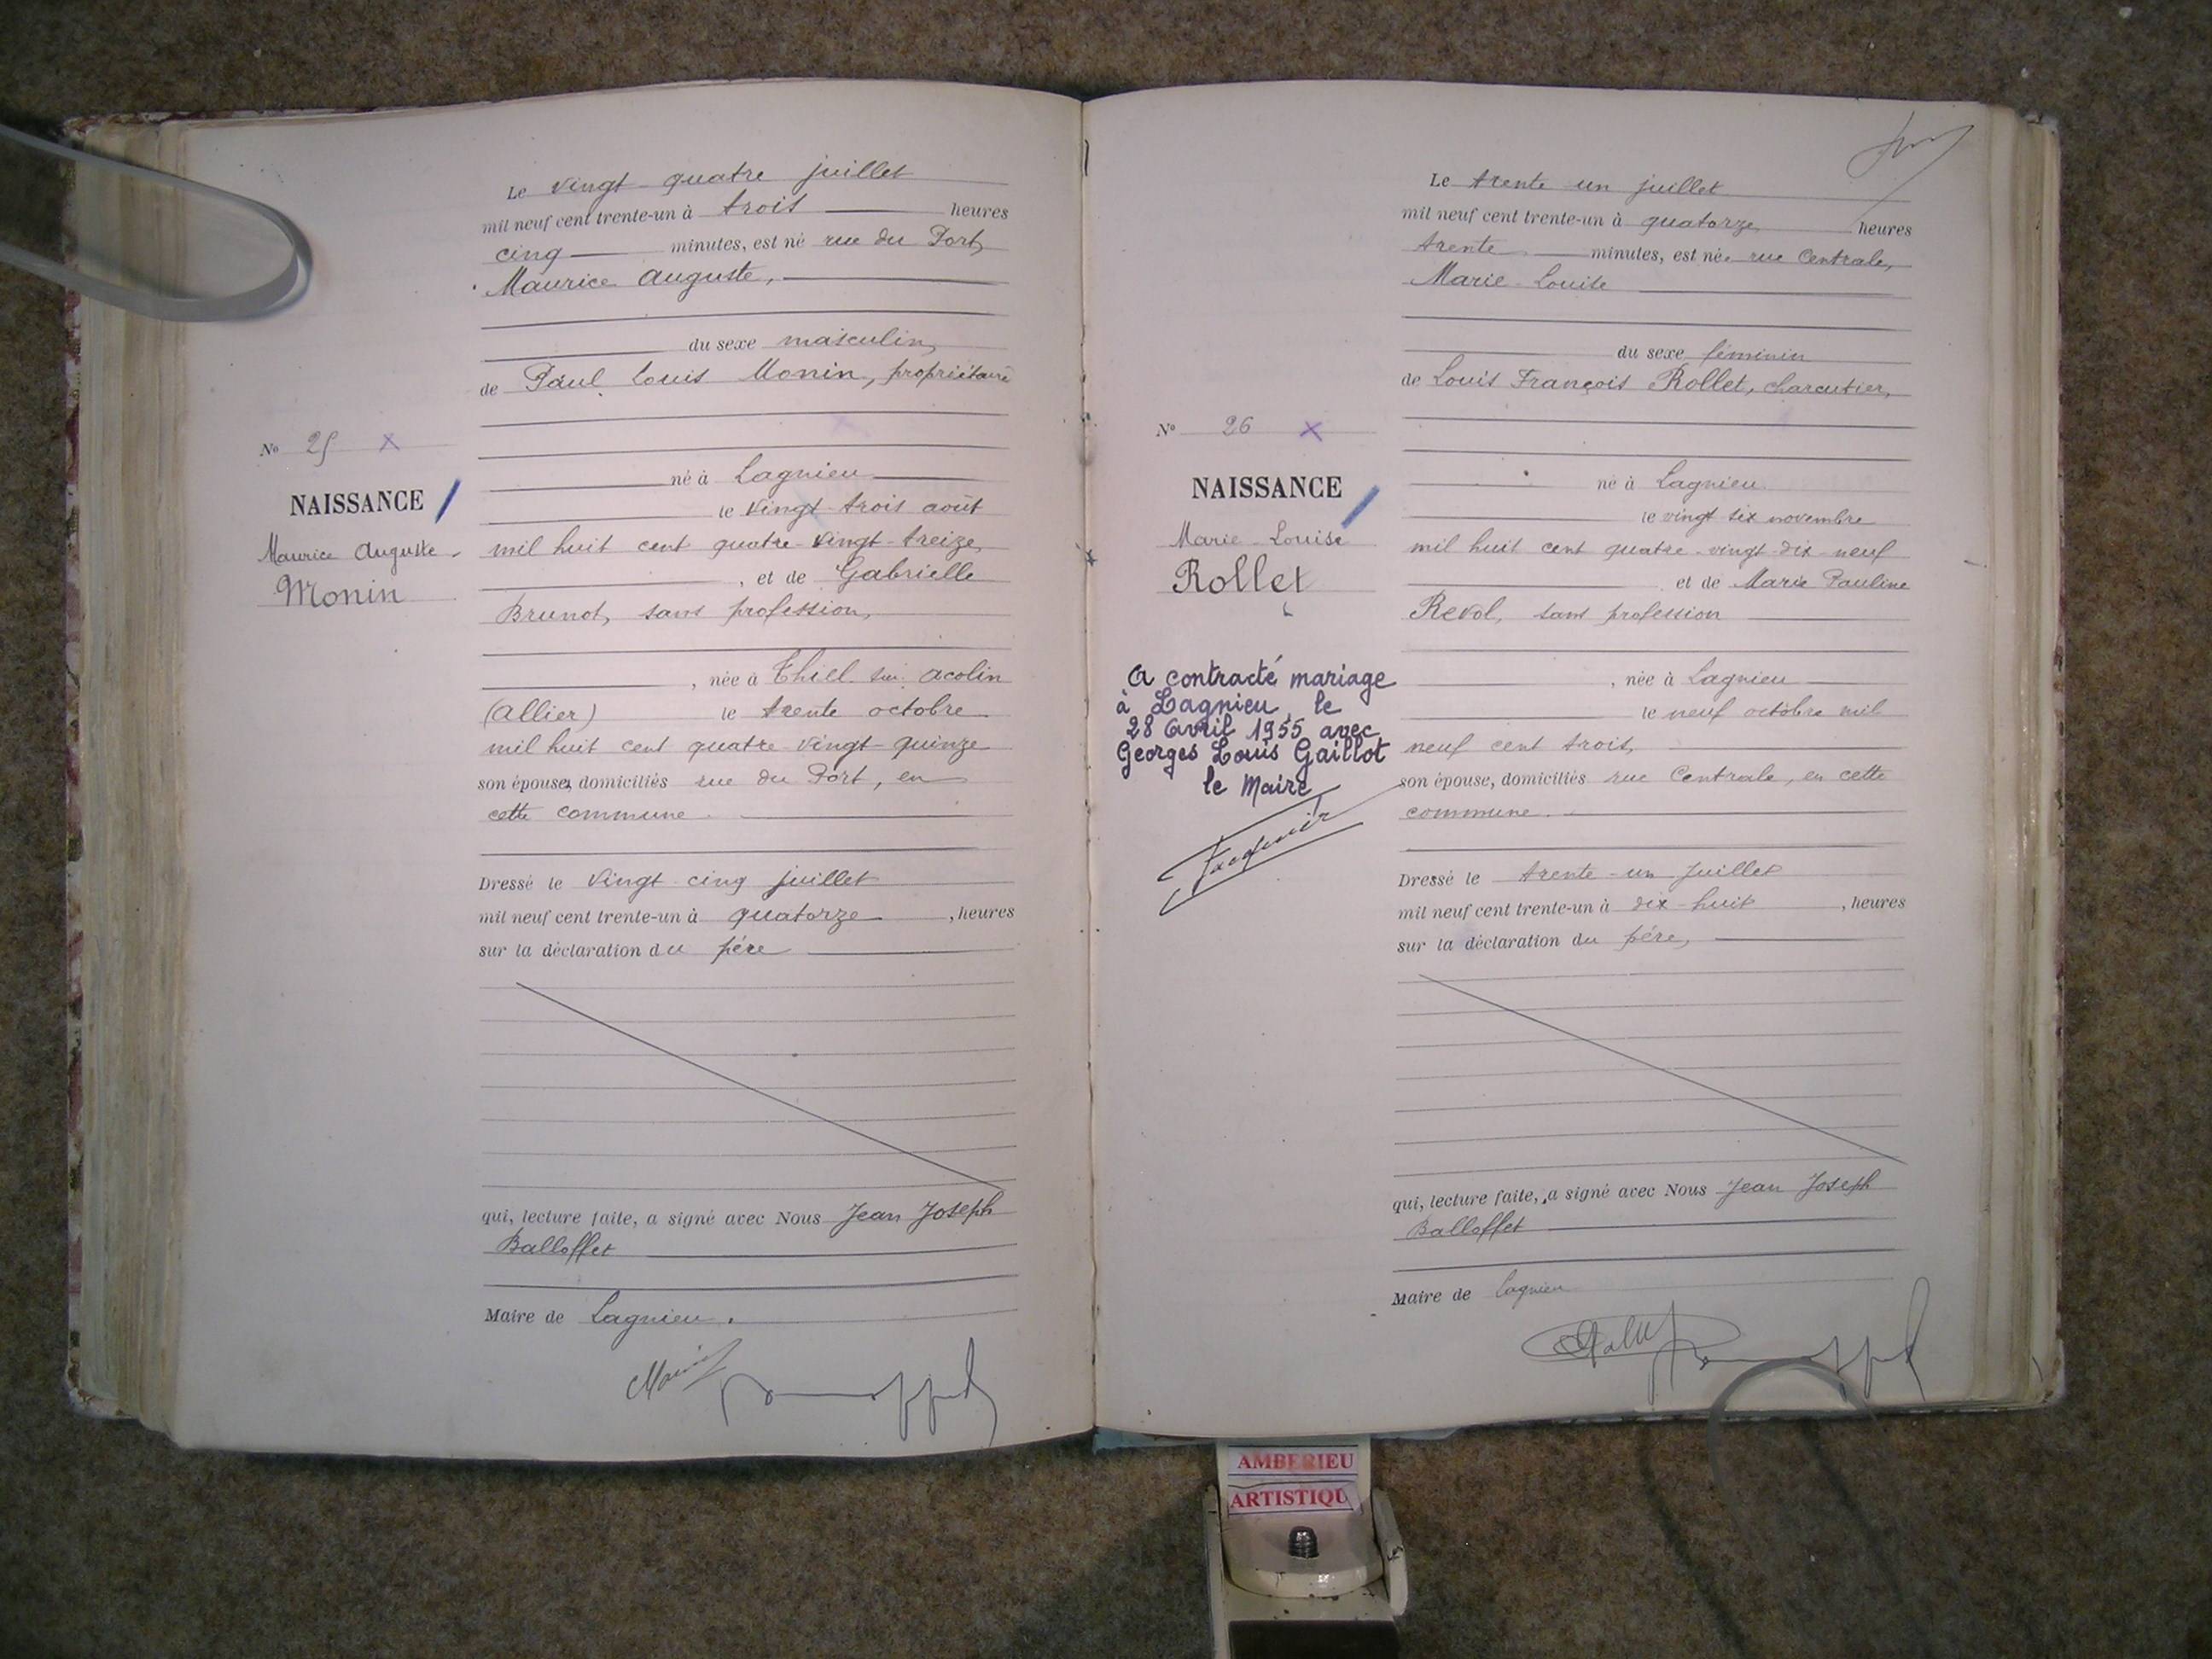 Le vingt-quatre juillet
mil neuf cent trente-un à trois heures
cinq minutes, est né rue du Port,
Maurice Auguste,
du sexe masculin,
de Paul Louis Monin, propriétaire
né à Lagnieu
le vingt-trois août
mil huit cent quatre-vingt-treize,
, et de Gabrielle
Brunot, sans profession,
, née à Thiel sur Acolin
(Allier) le trente octobre
mil huit cent quatre-vingt-quinze
son épouse, domiciliés rue du Port, en
cette commune.
Dressé le vingt-cinq juillet
mil neuf cent trente-un à quatorze , heures
sur la déclaration du père
qui, lecture faite, a signé avec Nous Jean Joseph
Balloffet
Maire de Lagnieu.
Monin
No 25 X
NAISSANCE
Maurice Auguste
Monin
Le trente-un juillet
mil neuf cent trente-un à quatorze heures
trente minutes, est née rue Centrale,
Marie-Louise
du sexe féminin
de Louis François Rollet, charcutier,
né à Lagnieu
le vingt-six novembre
mil huit cent quatre-vingt-dix-neuf
et de Marie Pauline
Revol, sans profession
, née à Lagnieu
le neuf octobre mil
neuf cent trois,
son épouse, domiciliés rue Centrale, en cette
commune.
Dressé le trente-un juillet
mil neuf cent trente-un à dix-huit , heures
sur la déclaration du père,
qui, lecture faite, a signé avec Nous Jean Joseph
Balloffet
Maire de Lagnieu
No 26 X
NAISSANCE
Marie-Louise
Rollet
A contracté mariage
à Lagnieu, le
28 Avril 1955 avec
Georges Louis Gaillot
le Maire,
AMBERIEU
ARTISTIQU